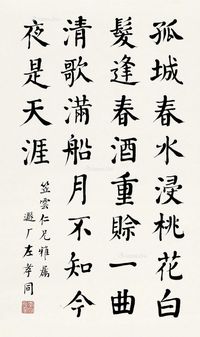 孤城春水浸桃花白
髮逢春酒重賒一曲
清歌滿船月不知今
夜是天涯
笠雲仁兄雅屬
遯厂左孝同